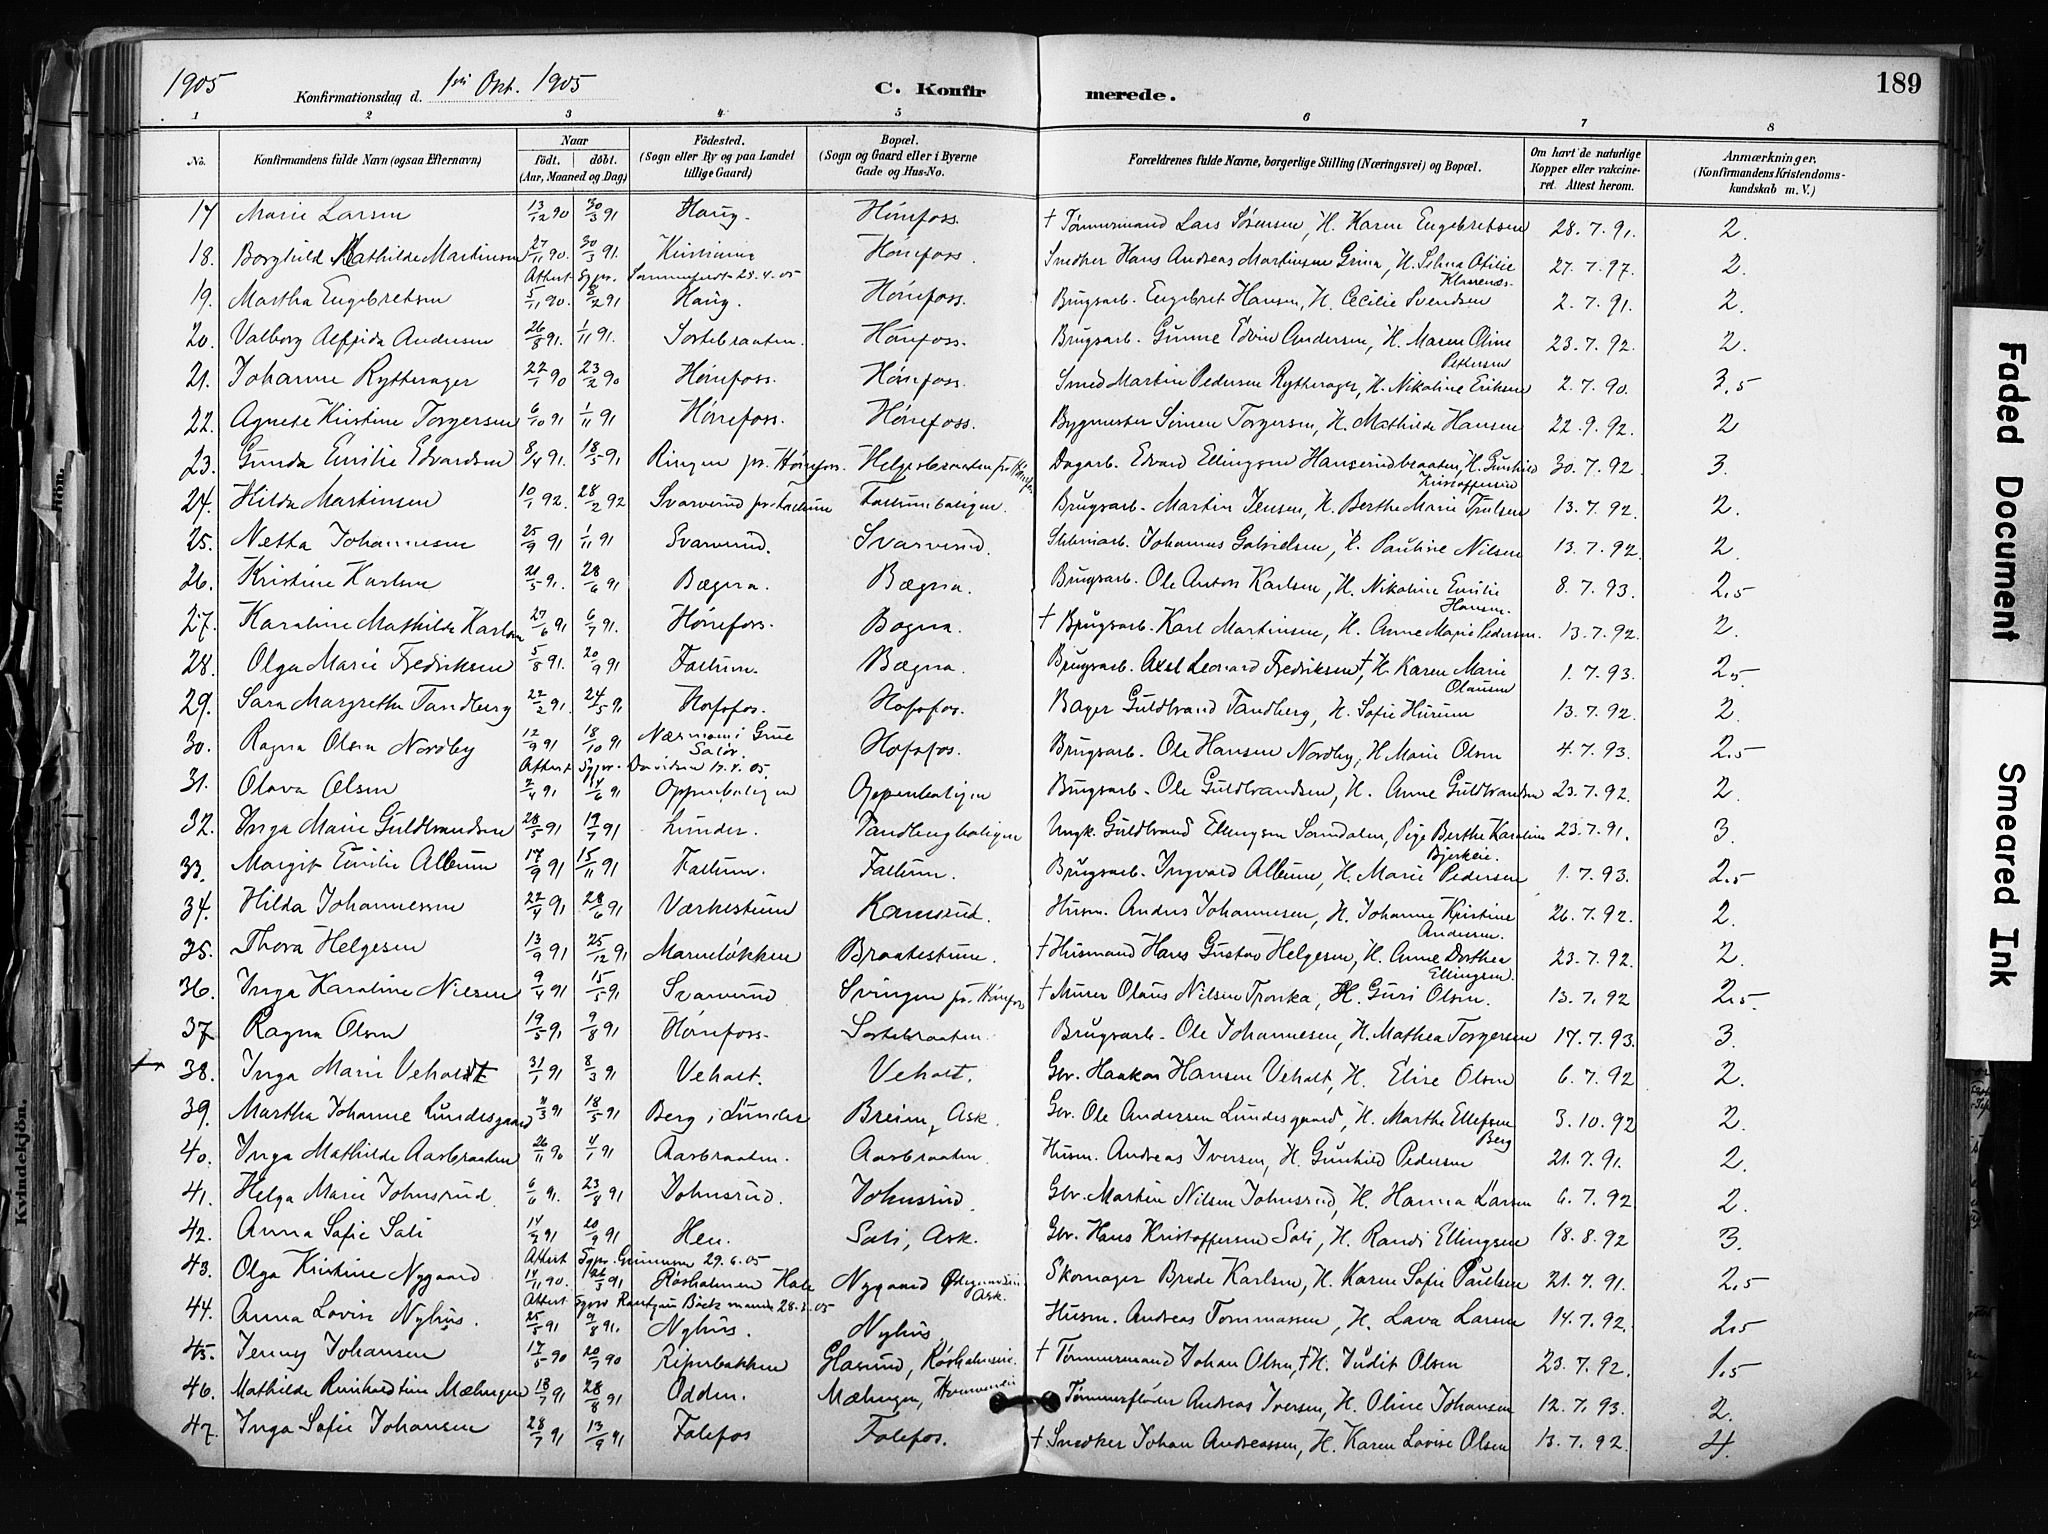 1905
Konfirmationsdag d. 1ste Okt. 1905
C. Konfirmerede.
189
1 2 3 4 5 6 7 8
No.
Konfirmandens fulde Navn (ogsaa Efternavn)
Naar
födt. döbt.
(Aar, Maaned og Dag)
Födested.
(Sogn eller By og paa Landet
tillige Gaard)
Bopæl.
(Sogn og Gaard eller i Byerne
Gade og Hus-No.
Forældrenes fulde Navne, borgerlige Stilling (Næringsvei) og Bopæl.
Om havt de naturlige
Kopper eller vakcine-
ret. Attest herom.
Anmærkninger.
(Konfirmandens Kristendoms-
kundskab m. V.)
17 Marie Larsen 13/12 90 30/3 91 Haug. Hønefoss. † Tømmermand Lars Sørensen, H. Karen Engebretsen 28.7.91. 2.
18. Borghild Mathilde Martinsen 27/11 90. 30/3 91. Kristiania Hønefoss. Snedker Hans Andreas Martinsen Grina, H. Selma Otilie 27.7.97. 2.
Attest Sgpr. 25.4.05
19. Martha Engebretsen 5/11 90. 8/2 91 Haug. Hønefoss. Brugsarb. Engebret Hansen, H. Cecilie Svendsen 2.7.91. 2.
20. Valborg Alfrida Andersen 26/8 91. 1/11 91. Sortebraaten. Hønefoss. Brugsarb. Gunne Edvin Andersen, H. Maren Oline Pettersen 23.7.92. 2.
21. Johanne Rytterager 22/1 90 23/2 90 Hønefoss. Hønefoss. Smed Martin Pedersen Rytterager, H. Nikoline Eriksen 2.7.90. 3.5
22. Agnete Kristine Torgersen 6/10 91 1/11 91 Hønefoss. Hønefoss. Bygmester Simen Torgersen, H. Mathilde Hansen 22.9.92. 2
23. Gunda Emilie Edvardsen 8/4 91. 18/5 91 Ringen pr. Hønefos. Helgesbraaten pr. Hønefos Dagarb. Edvard Ellingsen Hanserudbraaten, H. Gunhild Kristoffersen 30.7.92. 3.
24. Hilda Martinsen 10/1 92. 28/2 92 Svarverud pr. Follum Follumboligen Brugsarb. Martin Jensen, H. Berthe Marie Trulsen 13.7.92. 2.
25. Netta Johannesen 25/9 91 1/11 91 Svarverud. Svarverud. Sliberiarb. Johannes Gabrielsen, H. Pauline Nilsen 13.7.92. 2.
26. Kristine Karlsen 21/5 91. 28/6 91 Bægna. Bægna. Brugsarb. Ole Anton Karlsen, H. Nikoline Emilie Hansen. 8.7.93. 2.5
27. Karoline Mathilde Karlsen 27/6 91 6/7 91. Hønefoss. Bægna. † Brugsarb. Karl Martinsen, H. Anne Marie Pedersen. 13.7.92. 2.
28. Olga Marie Fredriksen 5/8 91. 20/9 91 Follum. Bægna. Brugsarb. Axel Leonard Fredriksen, † H. Karen Marie Olausen 1.7.93. 2.5
29. Sara Margrethe Tandberg 22/2 91. 24/5 91 Hofsfos. Hofsfos. Bager Guldbrand Tandberg, H. Sofie Hurum 13.7.92. 2.
30. Ragna Olsen Nordby 12/9 91 18/10 91 Næsmoen i Grue Solør Hofsfos. Brugsarb. Ole Hansen Nordby, H. Marie Olsen 4.7.93. 2.5
Attest Sgpr. Davidsen 17.4.05.
31. Olava Olsen 2/4 91 14/6 91 Oppenboligen Oppenboligen Brugsarb. Ole Guldbrandsen, H. Anne Guldbrandsen 23.7.92. 2.
32. Inga Marie Guldbrandsen 28/5 91 19/7 91 Lunder. Tandbergboligen Ungk. Guldbrand Ellingsen Somdalen, Pige Berthe Karoline Bjerkeie. 23.7.91. 3.
33. Margit Emilie Album 17/9 91 15/11 91 Follum. Follum. Brugsarb. Ingvard Album, H. Marie Pedersen 1.7.93. 2.5
34. Hilda Johannessen 22/4 91 28/6 91 Værkestuen Kamsrud. Husm. Anders Johannesen, H. Johanne Kristine Andersen. 26.7.92. 2.
35. Thora Helgesen 13/9 91 25/12 91 Marieløkken Braatestuen. † Husmand Hans Gustav Helgesen, H. Anne Dorthea Ellingsen. 23.7.92. 2.
36. Inga Karoline Nilsen 9/4 91 15/5 91 Svarverud Svingen pr. Hønefos † Murer Olaus Nilsen Tronka, H. Guri Olsen. 13.7.92 2.5
37 Ragna Olsen 19/5 91 9/8 91 Hønefoss. Sortebraaten. Brugsarb. Ole Johannesen, H. Mathea Torgersen 17.7.93. 3.
38. Inga Marie Veholt 31/1 91 8/3 91 Veholt. Veholt. Gbr. Haakon Hansen Veholt, H. Elise Olsen 6.7.92 2.
39. Martha Johanne Lundesgaard 4/3 91 18/5 91 Berg i Lunder Breien, Ask. Gbr. Ole Andersen Lundesgaard, H. Marthe Ellefsen Berg 3.10.92 2.
40. Inga Mathilde Aasbraaten 26/11 90 4/1 91 Aasbraaten. Aasbraaten. Husm. Andreas Iversen, H. Gunhild Pedersen 21.7.91. 2.
41. Helga Marie Johnsrud 6/6 91. 23/8 91 Johnsrud. Johnsrud. Gbr. Martin Nilsen Johnsrud, H. Hanna Larsen 6.7.92. 2.
42. Anna Sofie Soli 14/7 91 20/9 91 Hen. Soli, Ask. Gbr. Hans Kristoffersen Soli, H. Randi Ellingsen 18.8.92 3.
Attest Sgpr. 29.6.05
43. Olga Kristine Nygaard 14/11 90. 26/3 91 Røsholmen Hole Nygaard Ask. Skomager Brede Karlsen, H. Karen Sofie Paulsen 21.7.91. 2.5
44. Anna Lovise Nyhus. 25/5 91 9/8 91. Nyhus. Nyhus. Husm. Andreas Tommassen, H. Lava Larsen 14.7.92. 2.5
45. Jenny Johansen 17/5 90 20/7 90 Riperbakken Glasrud, Røsholmeie. † Tømmermand Johan Olsen, † H. Judit Olsen 23.7.92. 1.5
46. Mathilde Reinhardtine Mælingen 18/7 91 28/8 91 Odden. Mælingen, Tømmerfløder Andreas Iversen, H. Oline Johansen 12.7.93. 2.
47. Inga Sofie Johansen 28/7 91 13/9 91 Folefos Folefos. † Snedker Johan Andreassen, H. Karen Lovise Olsen 13.7.92. 4
Kvindekjön.
Faded Document
Smeared Ink